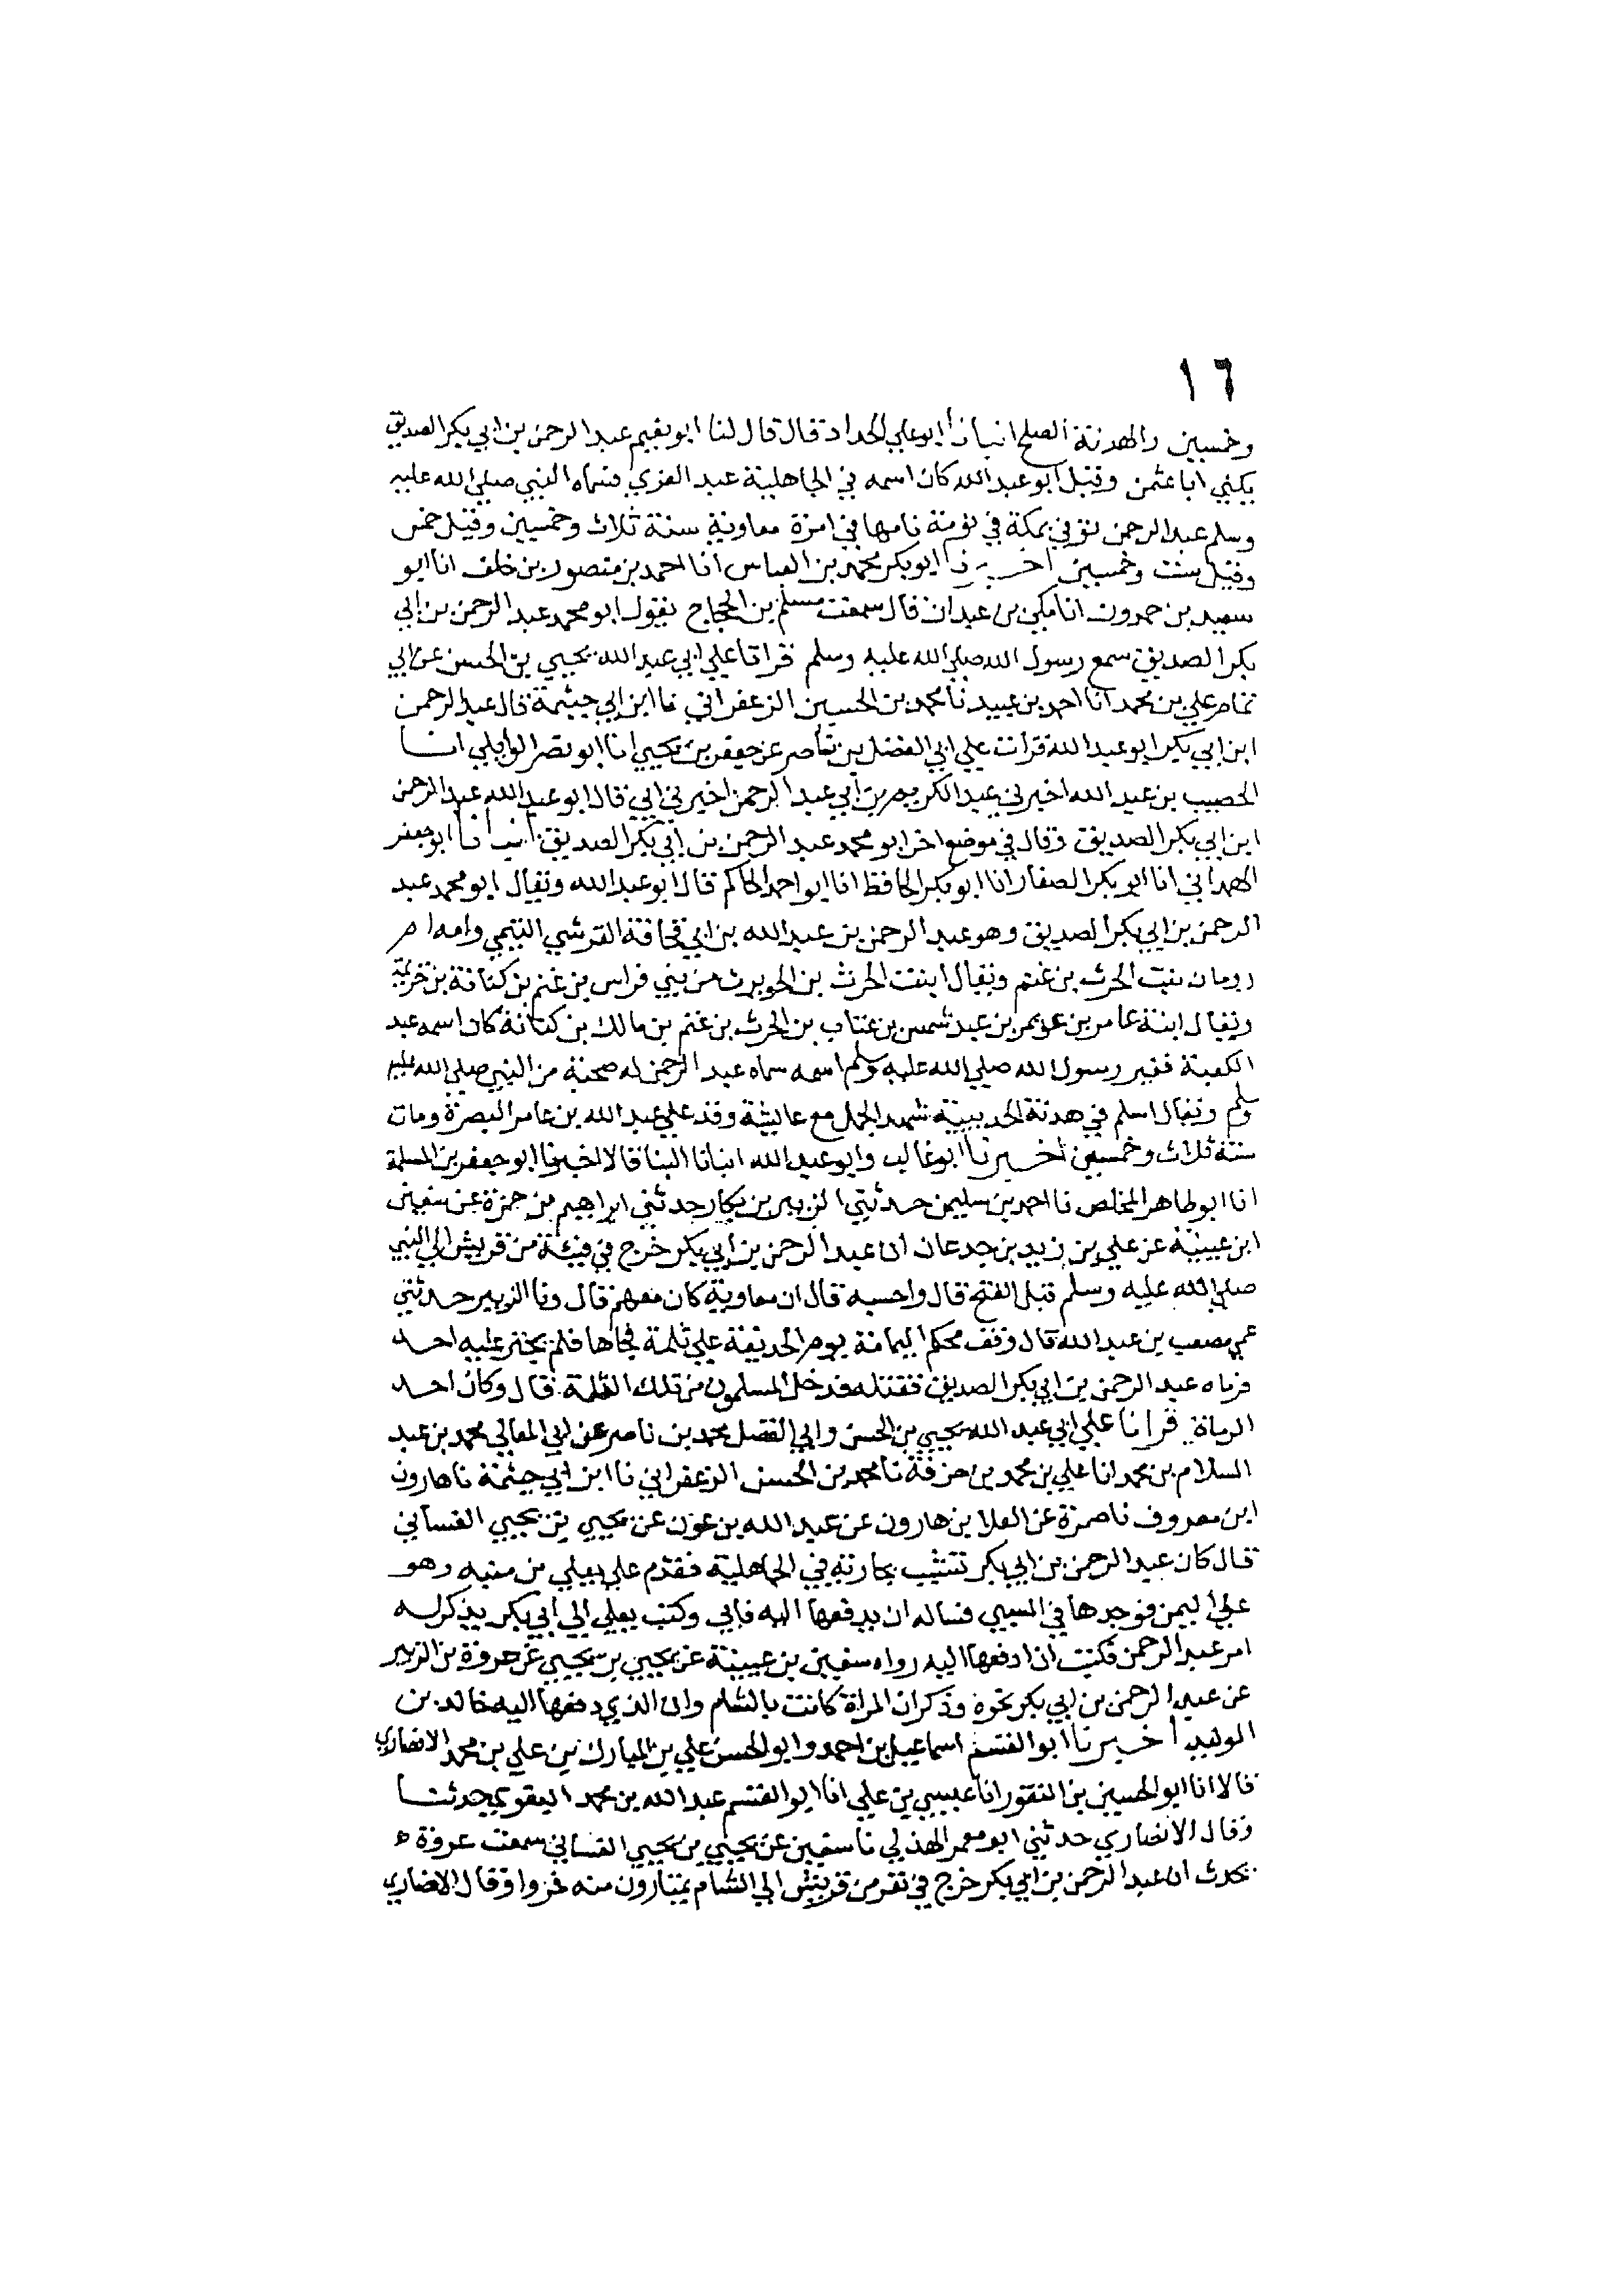 ١٦
وخمسين والهدنة الصلح انبانا ابو علي الحداد قال قال لنا ابو نعيم عبد الرحمن بن ابي بكر الصديق
يكني ابا عثمن وقيل ابو عبد الله كان اسمه في الجاهلية عبد العزي فسماه النبي صلي الله عليه
وسلم عبد الرحمن توفي بمكة في نومة نامها في امرة معاوية سنة ثلاث وخمسين وقيل خمس
وقيل ست وخمسين اخبرنا ابو بكر محمد بن العباس انا احمد بن منصور بن خلف انا ابو
سعيد بن حمدون انا مكي بن عبدان قال سمعت مسلم بن الحجاج يقول ابو محمد عبد الرحمن بن ابي
بكر الصديق سمع رسول الله صلي الله عليه وسلم قرانا علي ابي عبد الله يحيي بن الحسن عن ابي
تمام علي بن محمد انا احمد بن عبيد نا محمد بن الحسين الزعفراني نا ابن ابي خيثمة قال عبد الرحمن
ابن ابي بكر ابو عبد الله قرات علي ابي الفضل بن ناصر عن جعفر بن يحيي انا ابو نصر الوايلي انا
الخصيب بن عبد الله اخبرني عبد الكريم بن ابي عبد الرحمن اخبرني ابي قال ابو عبد الله عبد الرحمن
ابن ابي بكر الصديق وقال في موضع اخر ابو محمد عبد الرحمن بن ابي بكر الصديق انبانا ابو جعفر
الهمداني انا ابو بكر الصفار انا ابو بكر الحافظ انا ابو احمد الحاكم قال ابو عبد الله ويقال ابو محمد عبد
الرحمن بن ابي بكر الصديق وهو عبد الرحمن بن عبد الله بن ابي قحافة القرشي التيمي وامه ام
رومان بنت الحرث بن غنم ويقال ابنت الحرث بن الحويرث من بني فراس بن غنم بن كنانة بن خزيمة
ويقال ابنة عامر بن عويمر بن عبد شمس بن عتاب بن الحرث بن غنم بن مالك بن كنانة كان اسمه عبد
الكعبة فغير رسول الله صلي الله عليه وسلم اسمه سماه عبد الرحمن له صحبة من النبي صلي الله عليه
وسلم ويقال اسلم في هدنة الحديبية شهد الجمل مع عايشة وقد علي عبد الله بن عامر البصرة ومات
سنة ثلاث وخمسين اخبرنا ابو غالب وابو عبد الله ابنا البنا قالا اخبرنا ابو جعفر بن المسلمة
انا ابو طاهر المخلص نا احمد بن سليمن حدثني الزبير بن بكار حدثني ابراهيم بن حمزة عن سفين
ابن عيينة عن علي بن زيد بن جدعان ان عبد الرحمن بن ابي بكر خرج في فيئة من قريش الي النبي
صلي الله عليه وسلم قبل الفتح قال واحسبه قال ان معاوية كان معهم قال ونا الزبير حدثني
عمي مصعب بن عبد الله قال وقف محكم اليمامة يوم الحديقة علي ثلمة فحماها فلم يجتز عليه احد
فرماه عبد الرحمن بن ابي بكر الصديق فقتله فدخل المسلمون من تلك الثلمة قال وكان احد
الرماة قرانا علي ابي عبد الله يحيي بن الحسن وابي الفضل محمد بن ناصر عن ابي المعالي محمد بن عبد
السلام بن محمد انا علي بن محمد بن خزفة نا محمد بن الحسين الزعفراني نا ابن ابي خيثمة نا هارون
ابن معروف نا ضمرة عن العلا بن هارون عن عبد الله بن عون عن يحيي بن يحيي الغساني
قال كان عبد الرحمن بن ابي بكر تشبب بجارية في الجاهلية فقدم علي يعلي بن منيه وهو
علي اليمن فوجدها في السبي فساله ان يدفعها اليه فابي وكتب يعلي الي ابي بكر يذكر له
امر عبد الرحمن فكتب ان ادفعها اليه رواه سفين بن عيينة عن يحيي بن يحيي عن عروة بن الزبير
عن عبد الرحمن بن ابي بكر نحوه وذكر ان المراة كانت بالشام وان الذي دفعها اليه خالد بن
الوليد اخبرنا ابو القسم اسماعيل بن احمد وابو الحسن علي بن المبارك بن علي بن محمد الانصاري
قالا انا ابو الحسين بن النقور انا عيسي بن علي انا ابو القسم عبد الله بن محمد البغوي حدثنا
وقال الانصاري حدثني ابو معمر الهذلي نا سفين عن يحيي بن يحيي الغساني سمعت عروة
يحدث ان عبد الرحمن بن ابي بكر خرج في نفر من قريش الي الشام يمتارون منه فروا وقال الانصاري